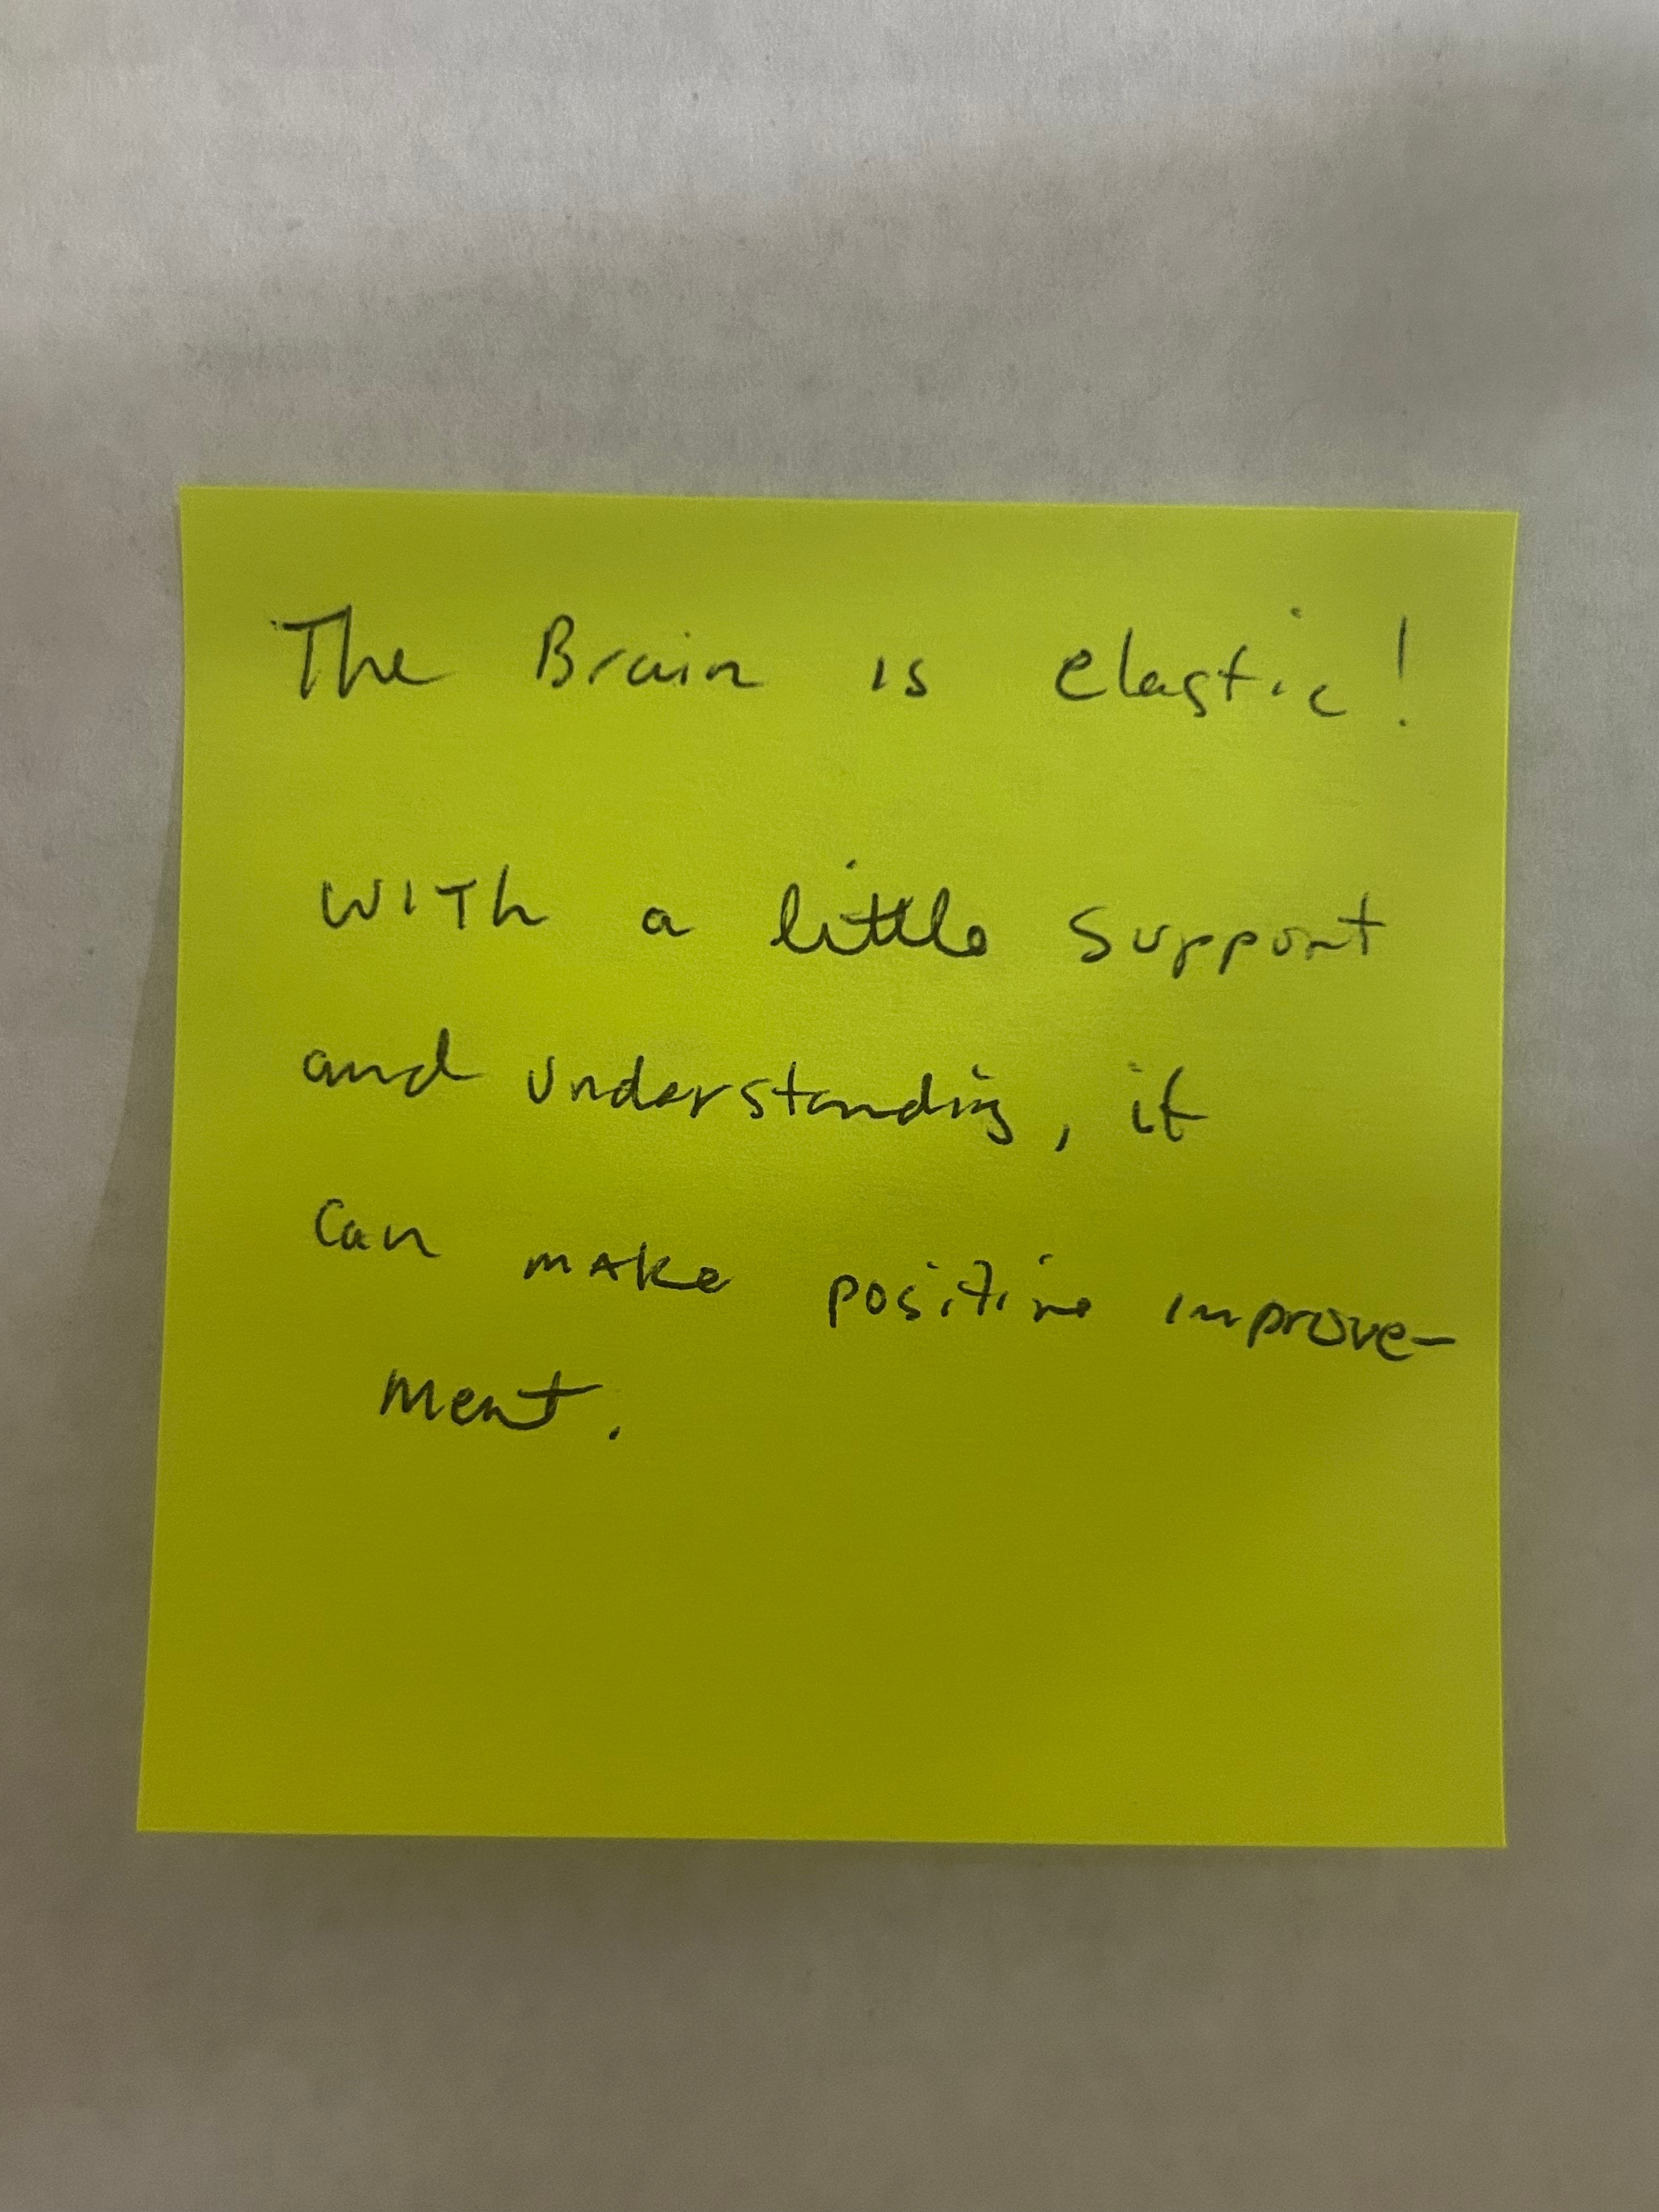 The Brain is elastic!
with a little support
and understanding, it
can make positive improve-
ment.